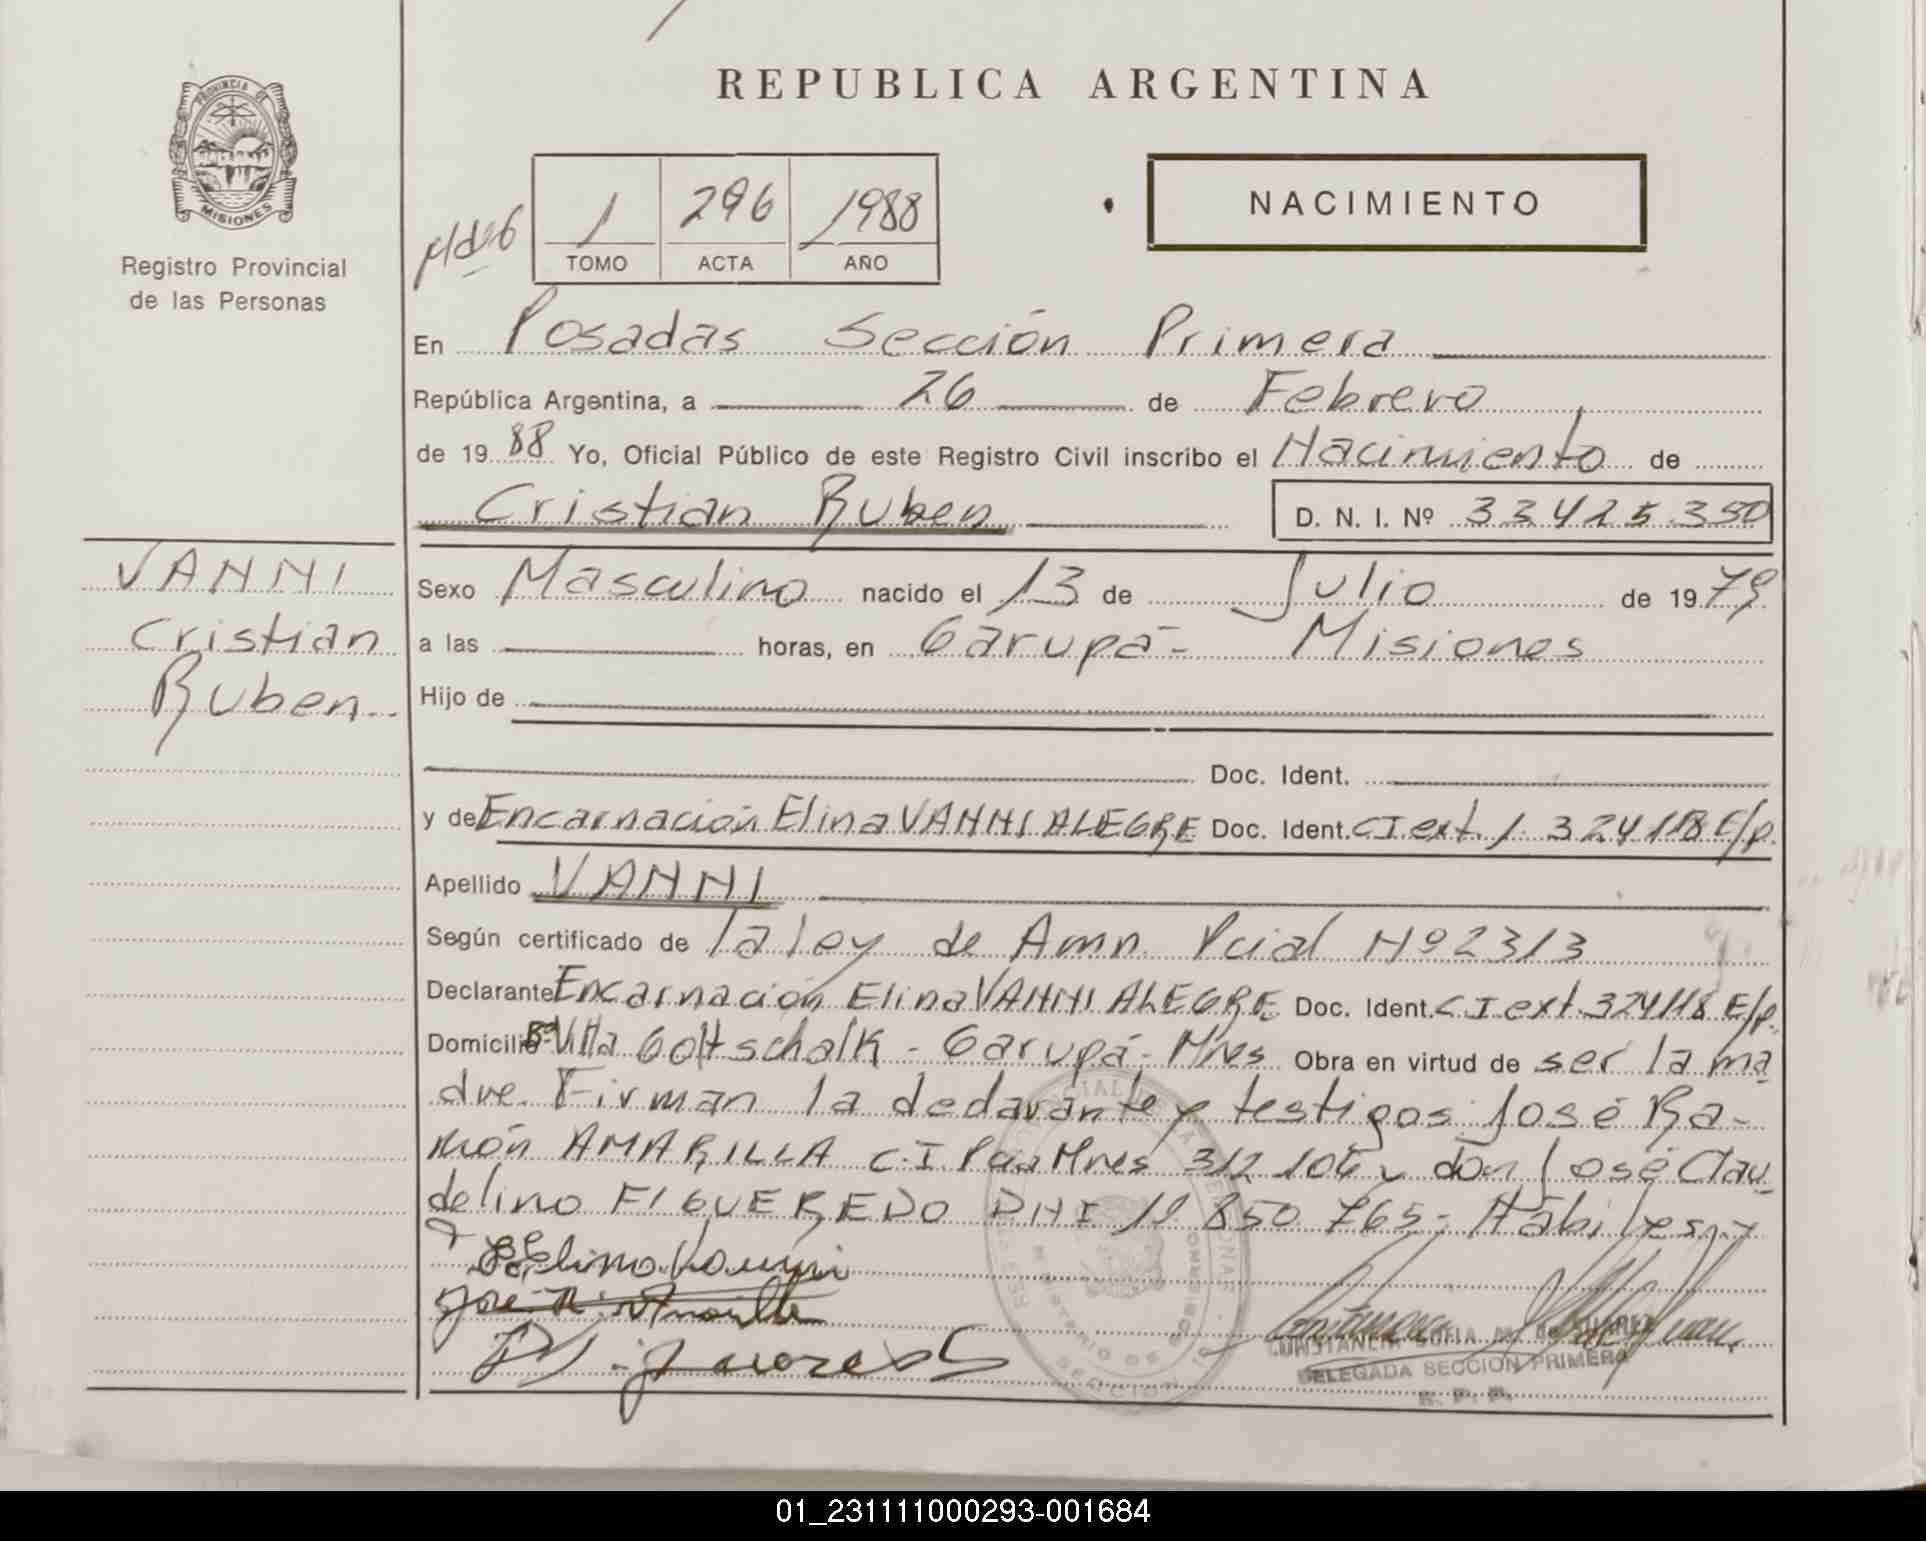 REPUBLICA ARGENTINA
PROVINCIA DE
MISIONES
Registro Provincial
de las Personas
1 296 1988
TOMO ACTA AÑO
NACIMIENTO
En Posadas Sección Primera
República Argentina, a 26 de Febrero
de 1988 Yo, Oficial Público de este Registro Civil inscribo el Nacimiento de
Cristian Ruben D. N. I. Nº 33425350
VANNI
Cristian
Ruben
Sexo Masculino nacido el 13 de Julio de 1979
a las horas, en Garupá - Misiones
Hijo de
Doc. Ident.
y de Encarnación Elina VANNI ALEGRE Doc. Ident. CI ext. 324118 E/p.
Apellido VANNI
Según certificado de la ley de Amn. Pcial Nº 2313
Declarante Encarnación Elina VANNI ALEGRE Doc. Ident. CI ext. 324118 E/p.
Domicilio Bº Villa Goltschalk - Garupá - Mnes Obra en virtud de ser la ma
dre. Firman la declarante y testigos José Ra-
món AMARILLA C.I. Pcia Mnes 312.106 y don José Clau
delino FIGUEREDO DNI 850 765 - Hábiles
DELEGADA SECCION PRIMERA
R. P. P.
01_231111000293-001684